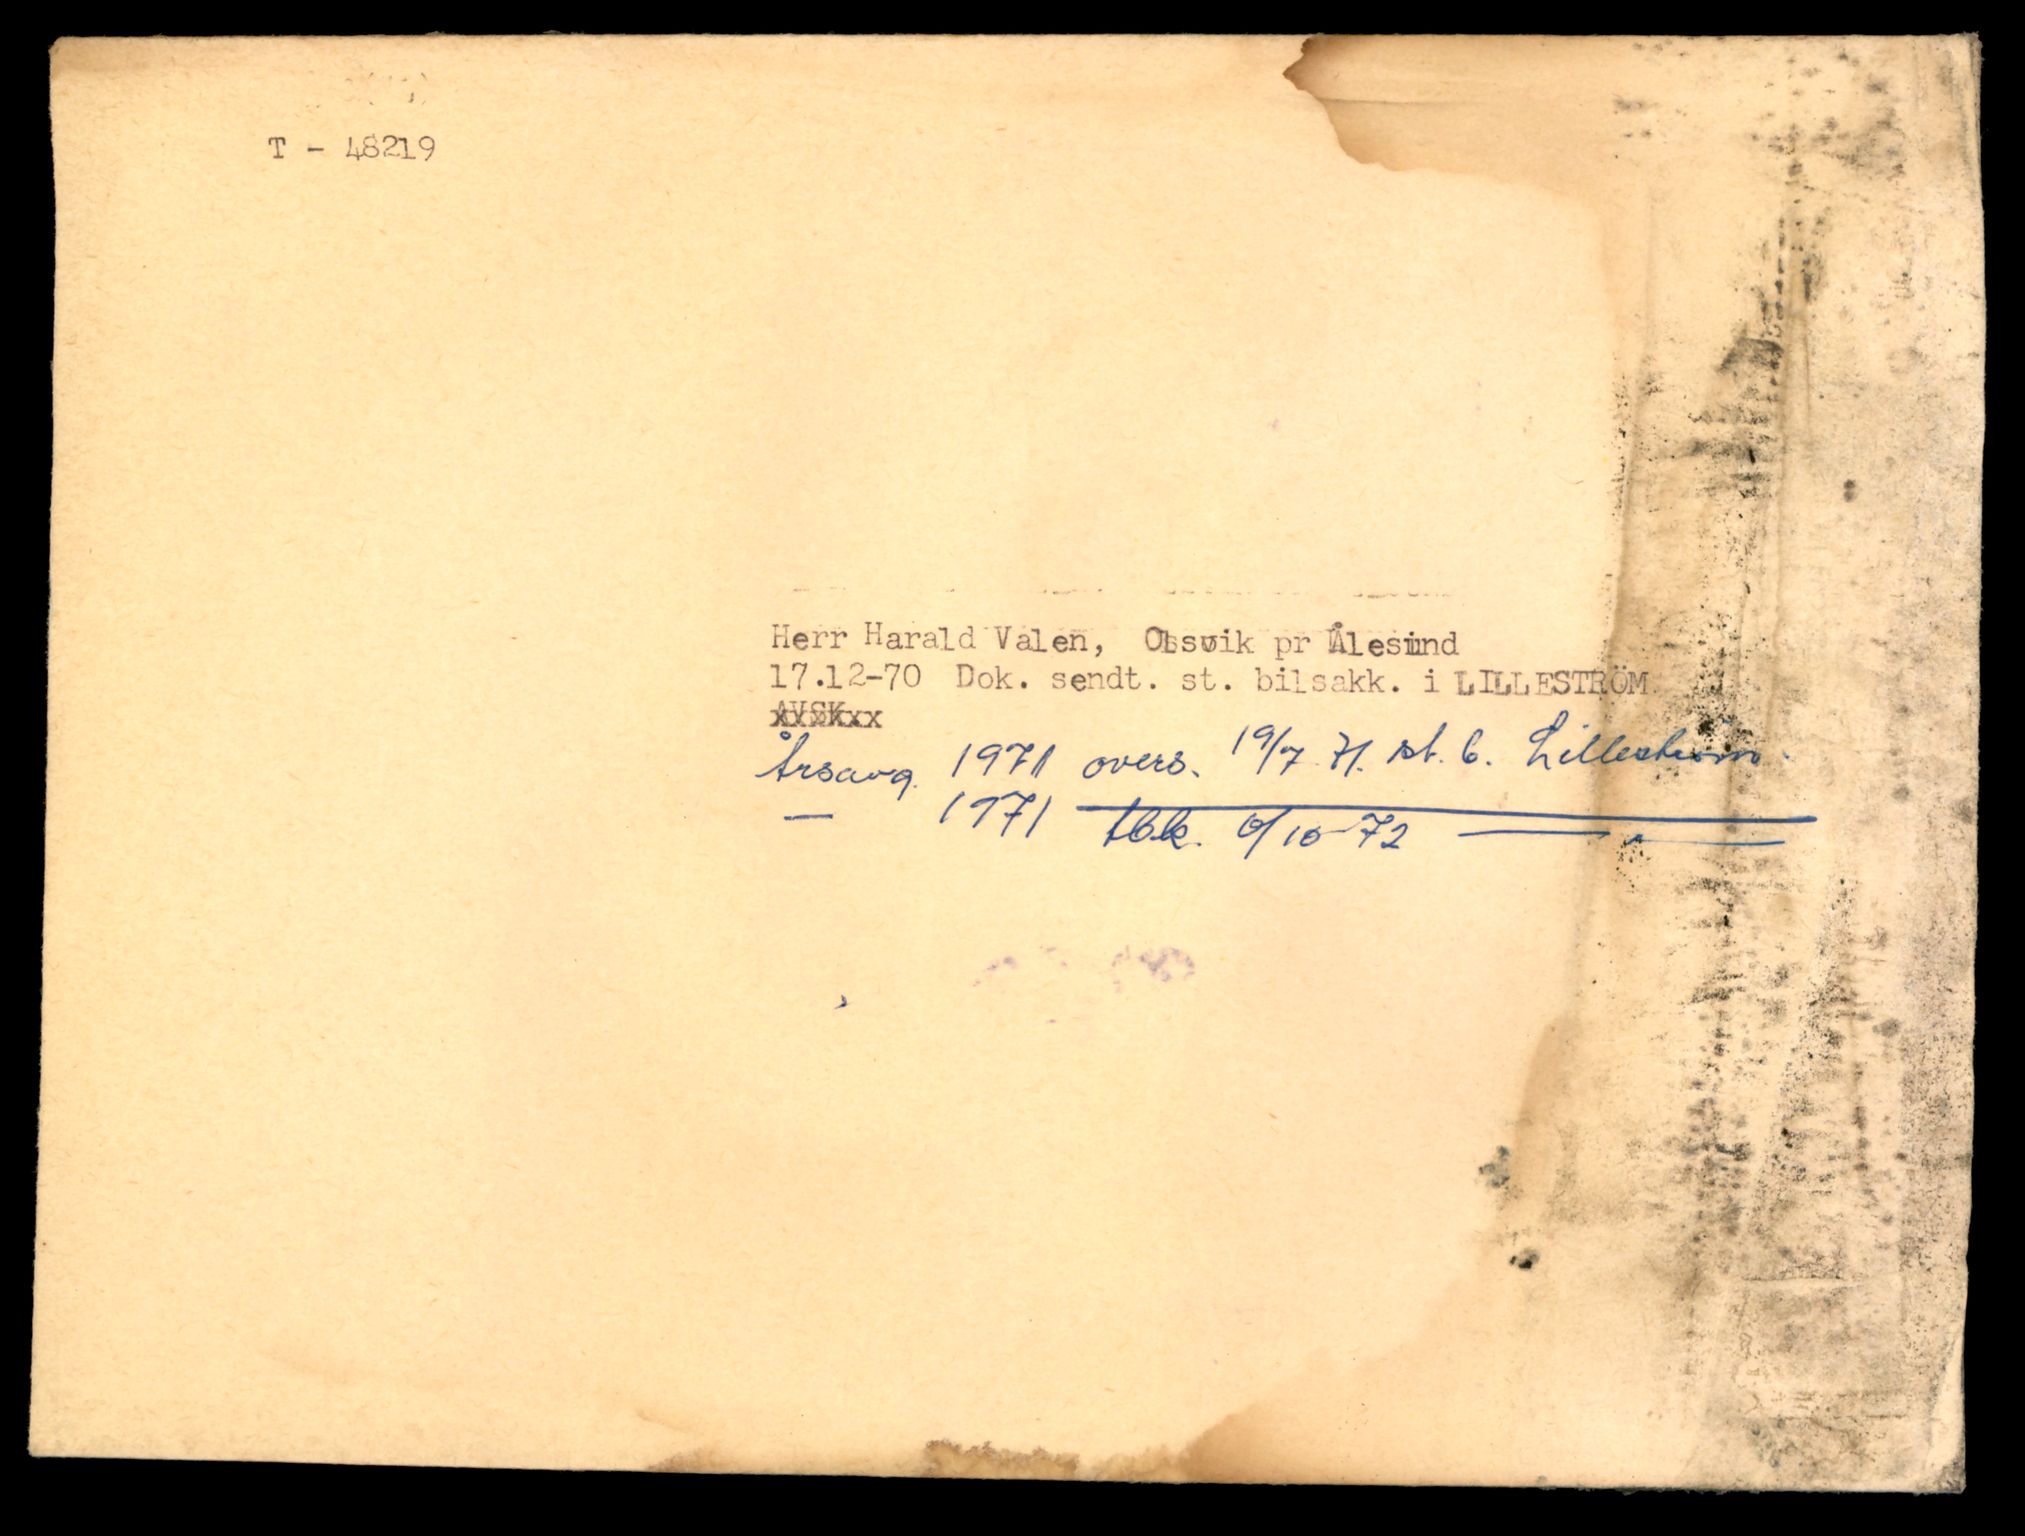 T - 48219
Herr Harald Valen, Olsvik pr Ålesund
17.12-70 Dok. sendt. st. bilsakk. i LILLESTRÖM.
Årsavg. 1971 overs. 19/7 71. st. b. Lillestrøm.
— 1971 tbk. 6/10-72 — " —